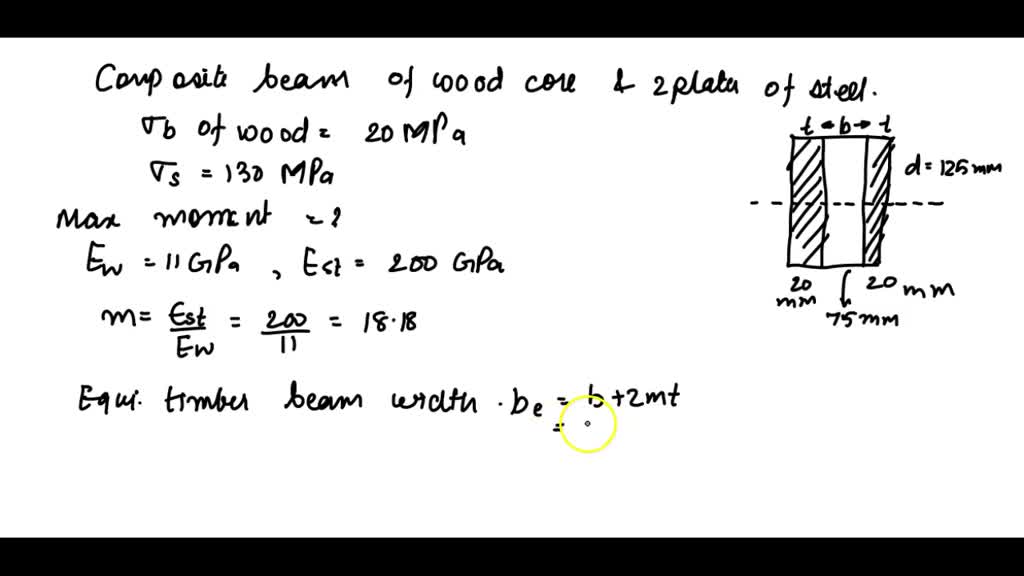 Composite beam of wood core & 2 plates of steel.
σb of wood = 20 MPa
σs = 130 MPa
Max moment = ?
Ew = 11 GPa , Est = 200 GPa
m = Est/Ew = 200/11 = 18.18
Equi. timber beam width . be = b + 2mt
=
t b t
d = 125 mm
20 mm
75 mm
20 mm